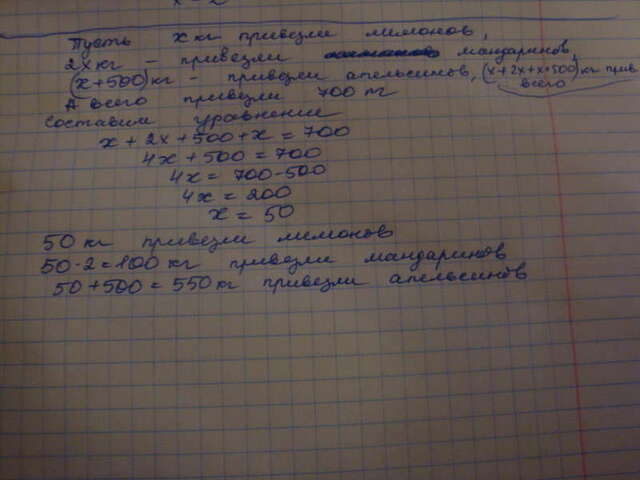 Пусть х кг привезли лимонов,
2х кг - привезли мандаринов,
(х+500) кг - привезли апельсинов, (х+2х+х+500) кг прив
А всего привезли 700 кг всего
Составим уравнение
х + 2х + 500 + х = 700
4х + 500 = 700
4х = 700-500
4х = 200
х = 50
50 кг привезли лимонов
50·2=100 кг привезли мандаринов
50+500 = 550 кг привезли апельсинов